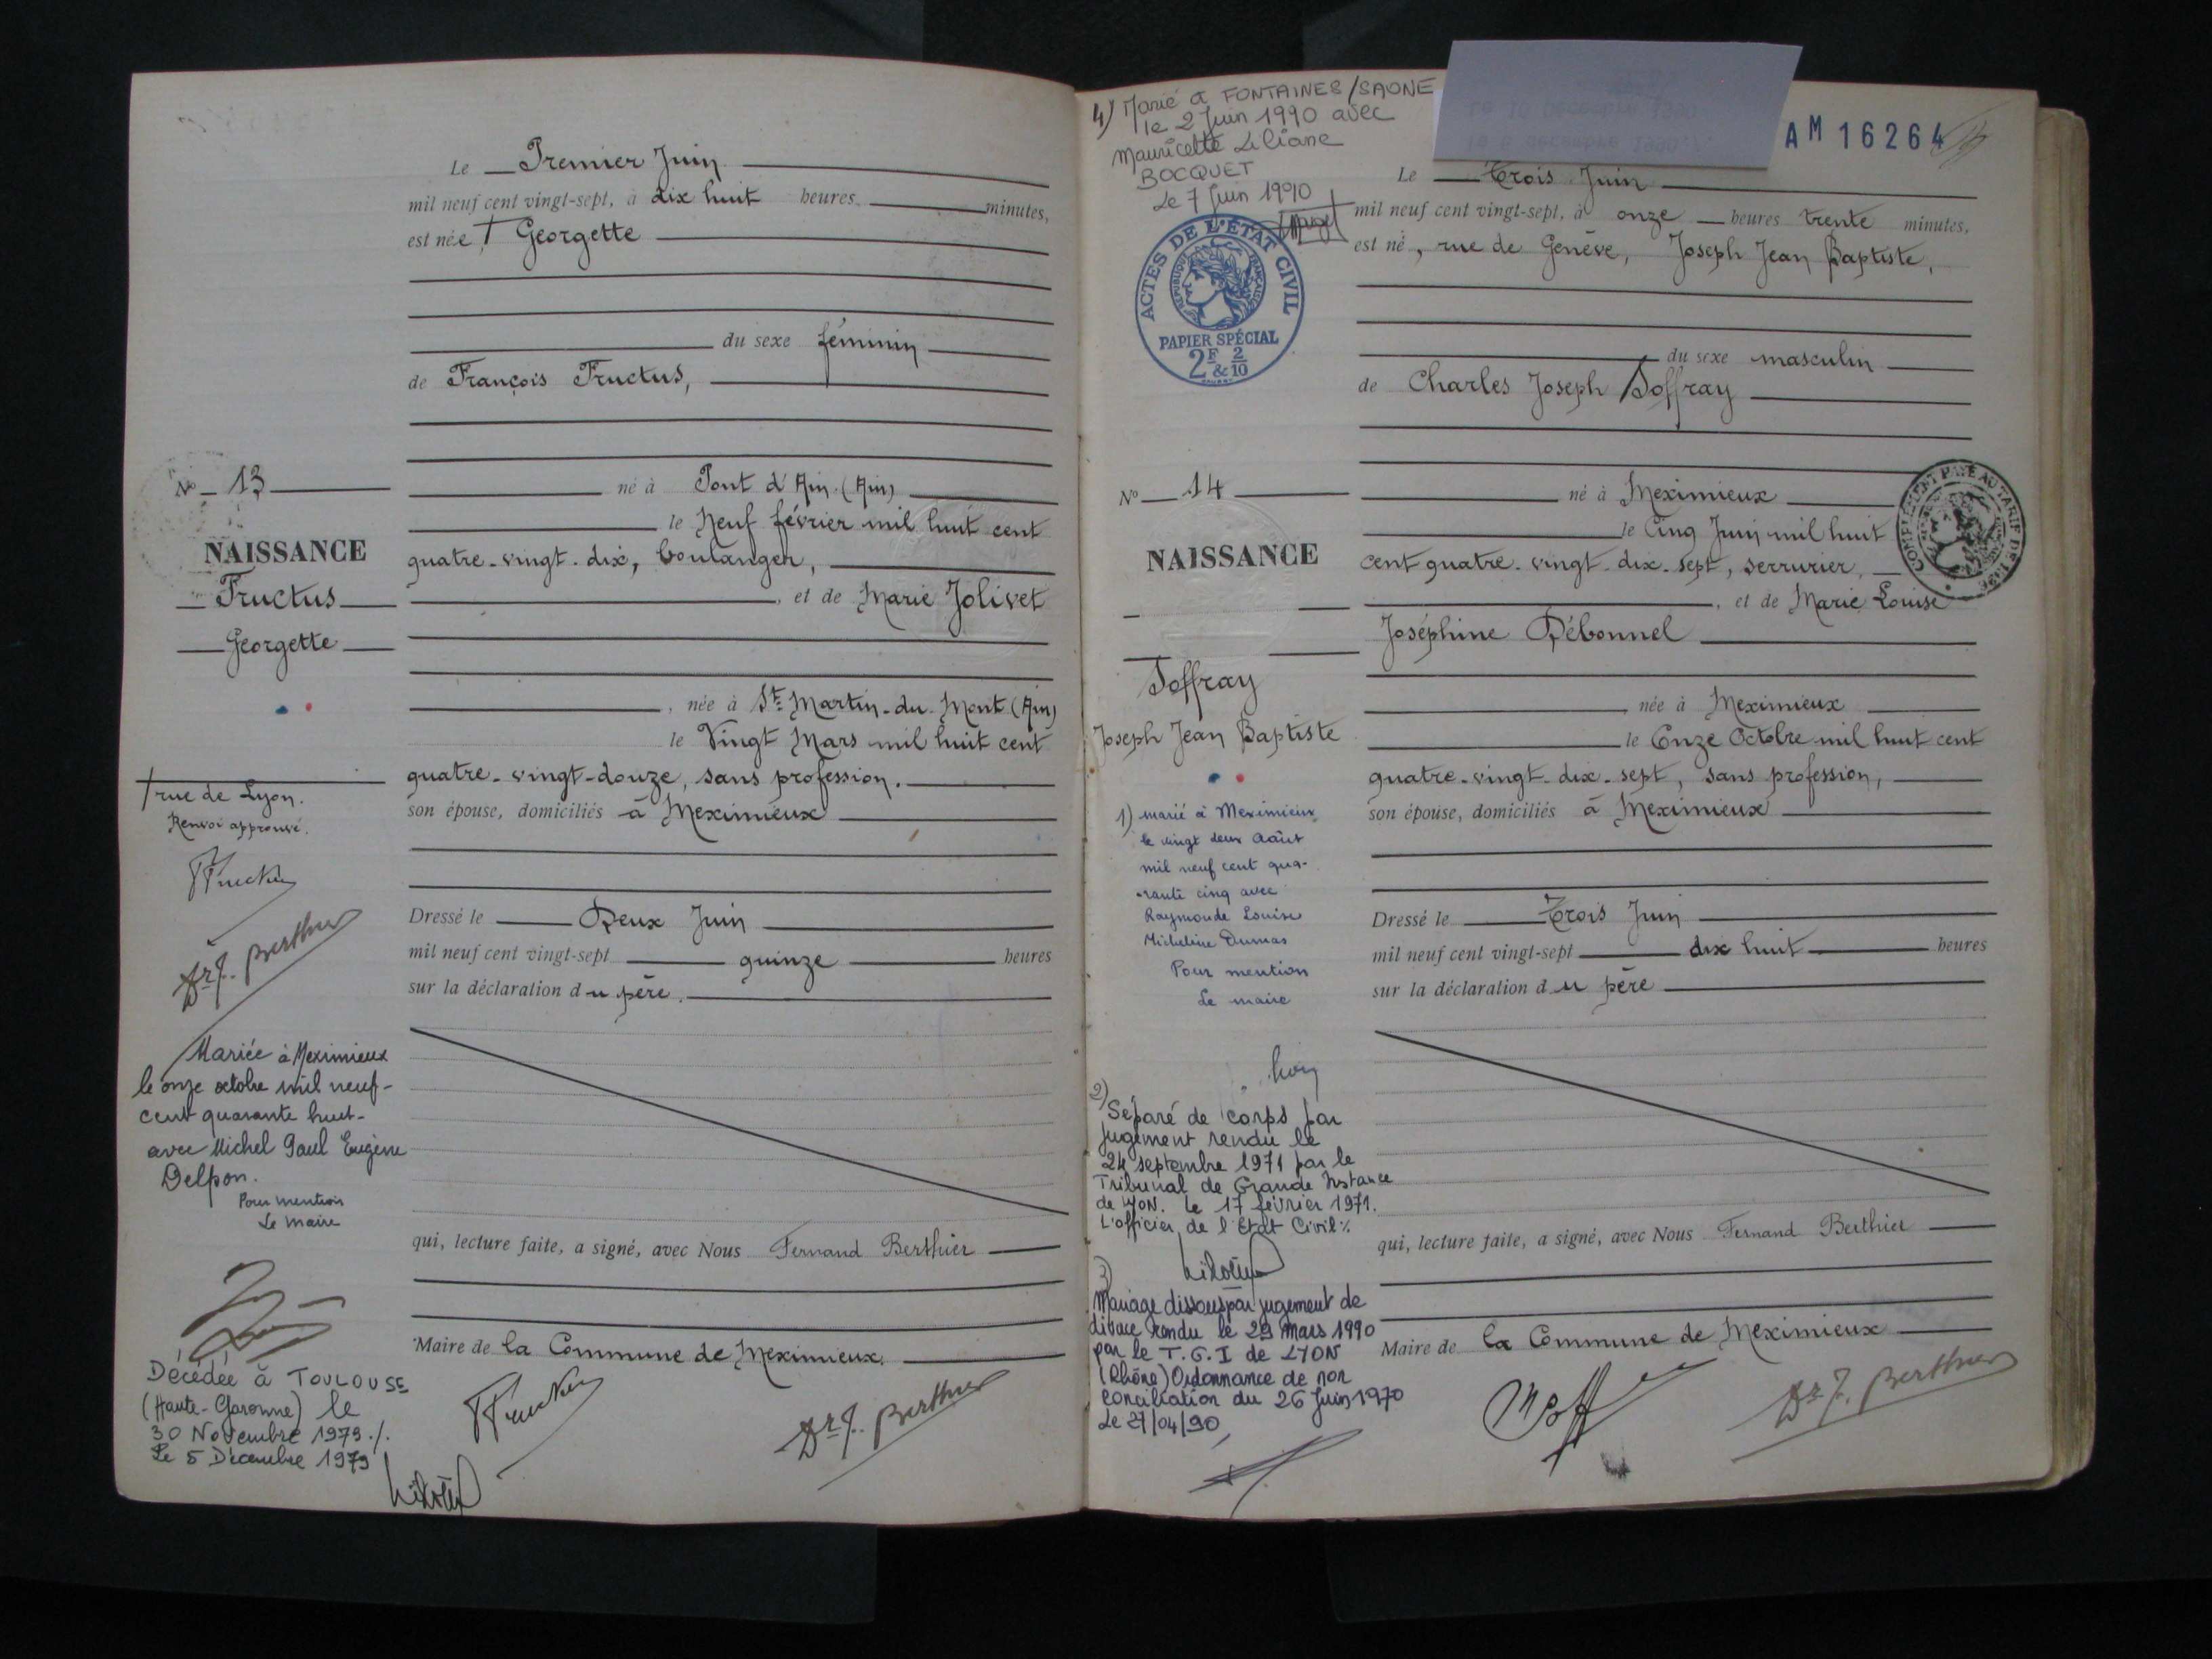 Le Premier Juin
mil neuf cent vingt-sept, à dix huit heures minutes,
est née † Georgette
du sexe féminin
de François Fructus,
né à Pont d'Ain (Ain)
le Neuf février mil huit cent
quatre-vingt-dix, boulanger,
, et de Marie Jolivet
, née à St Martin-du-Mont (Ain)
le Vingt Mars mil huit cent
quatre-vingt-douze, sans profession.
son épouse, domiciliés à Meximieux
Dressé le Deux Juin
mil neuf cent vingt-sept quinze heures
sur la déclaration du père.
qui, lecture faite, a signé, avec Nous Fernand Berthier
Maire de la Commune de Meximieux.
FFructus
Dr F. Berthier
No 13
NAISSANCE
Fructus
Georgette
† rue de Lyon.
Renvoi approuvé.
FFructus
Dr F. Berthier
Mariée à Meximieux
le onze octobre mil neuf-
cent quarante huit-
avec Michel Paul Eugène
Delpon.
Pour mention
Le maire
Décédée à TOULOUSE
(Haute-Garonne) le
30 Novembre 1979./.
Le 5 Décembre 1979
4) Marié à FONTAINES/SAONE
le 2 Juin 1990 avec
Mauricette Liliane
BOCQUET
Le 7 Juin 1990
ACTES DE L'ÉTAT CIVIL
RÉPUBLIQUE FRANÇAISE
PAPIER SPÉCIAL
2F & 2/10
AM 16264
Le Trois Juin
mil neuf cent vingt-sept, à onze heures trente minutes,
est né, rue de Genève, Joseph Jean Baptiste,
du sexe masculin
de Charles Joseph Joffray
né à Meximieux
le Cinq Juin mil huit
cent quatre-vingt-dix-sept, serrurier,
, et de Marie Louise
Joséphine Débonnel
née à Meximieux
le Onze Octobre mil huit cent
quatre-vingt-dix-sept, sans profession,
son épouse, domiciliés à Meximieux
Dressé le Trois Juin
mil neuf cent vingt-sept dix huit heures
sur la déclaration du père
qui, lecture faite, a signé, avec Nous Fernand Berthier
Maire de la Commune de Meximieux
Dr F. Berthier
COMPLÉMENT PAYÉ AU TARIF DE
No 14
NAISSANCE
Joffray
Joseph Jean Baptiste
1) marié à Meximieux
le vingt deux Août
mil neuf cent qua-
-rante cinq avec
Raymonde Louise
Micheline Dumas
Pour mention
Le maire
2)
Séparé de corps par
jugement rendu le
24 septembre 1971 par le
Tribunal de Grande Instance
de LYON. Le 17 février 1971.
L'officier de l'Etat Civil %
3)
Mariage dissous par jugement de
divorce rendu le 29 Mars 1990
par le T.G.I de LYON
(Rhône) Ordonnance de non
conciliation du 26 Juin 1970
Le 21/04/90